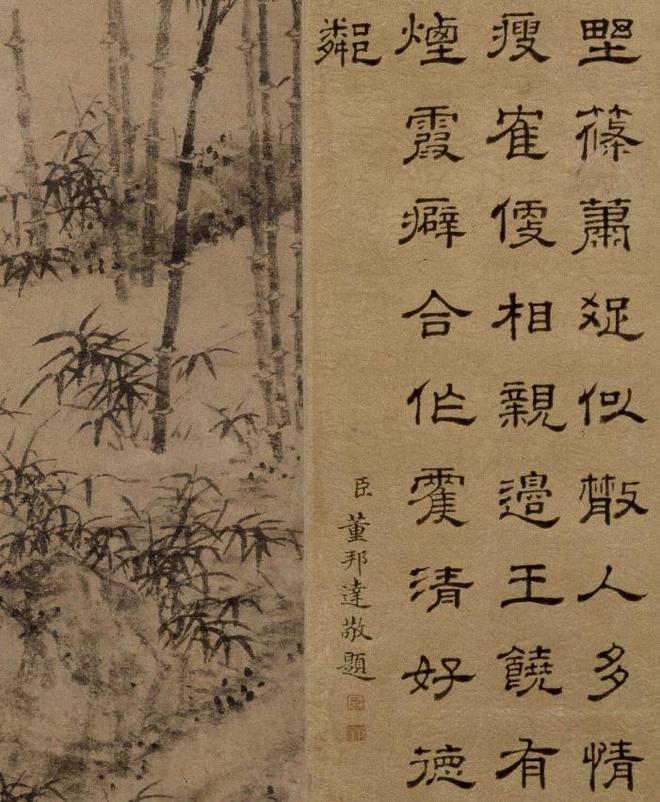 野篠蕭疏似散人多情
瘦寉便相親邊王饒有
煙霞癖合作霍清好德
鄰
臣董邦達敬題